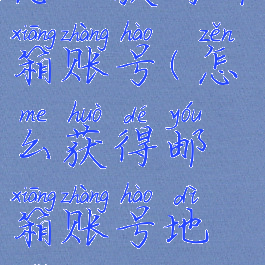 xiāng zhàng hào zěn
箱账号(怎
me huò dé yóu
么获得邮
xiāng zhàng hào dì
箱账号地